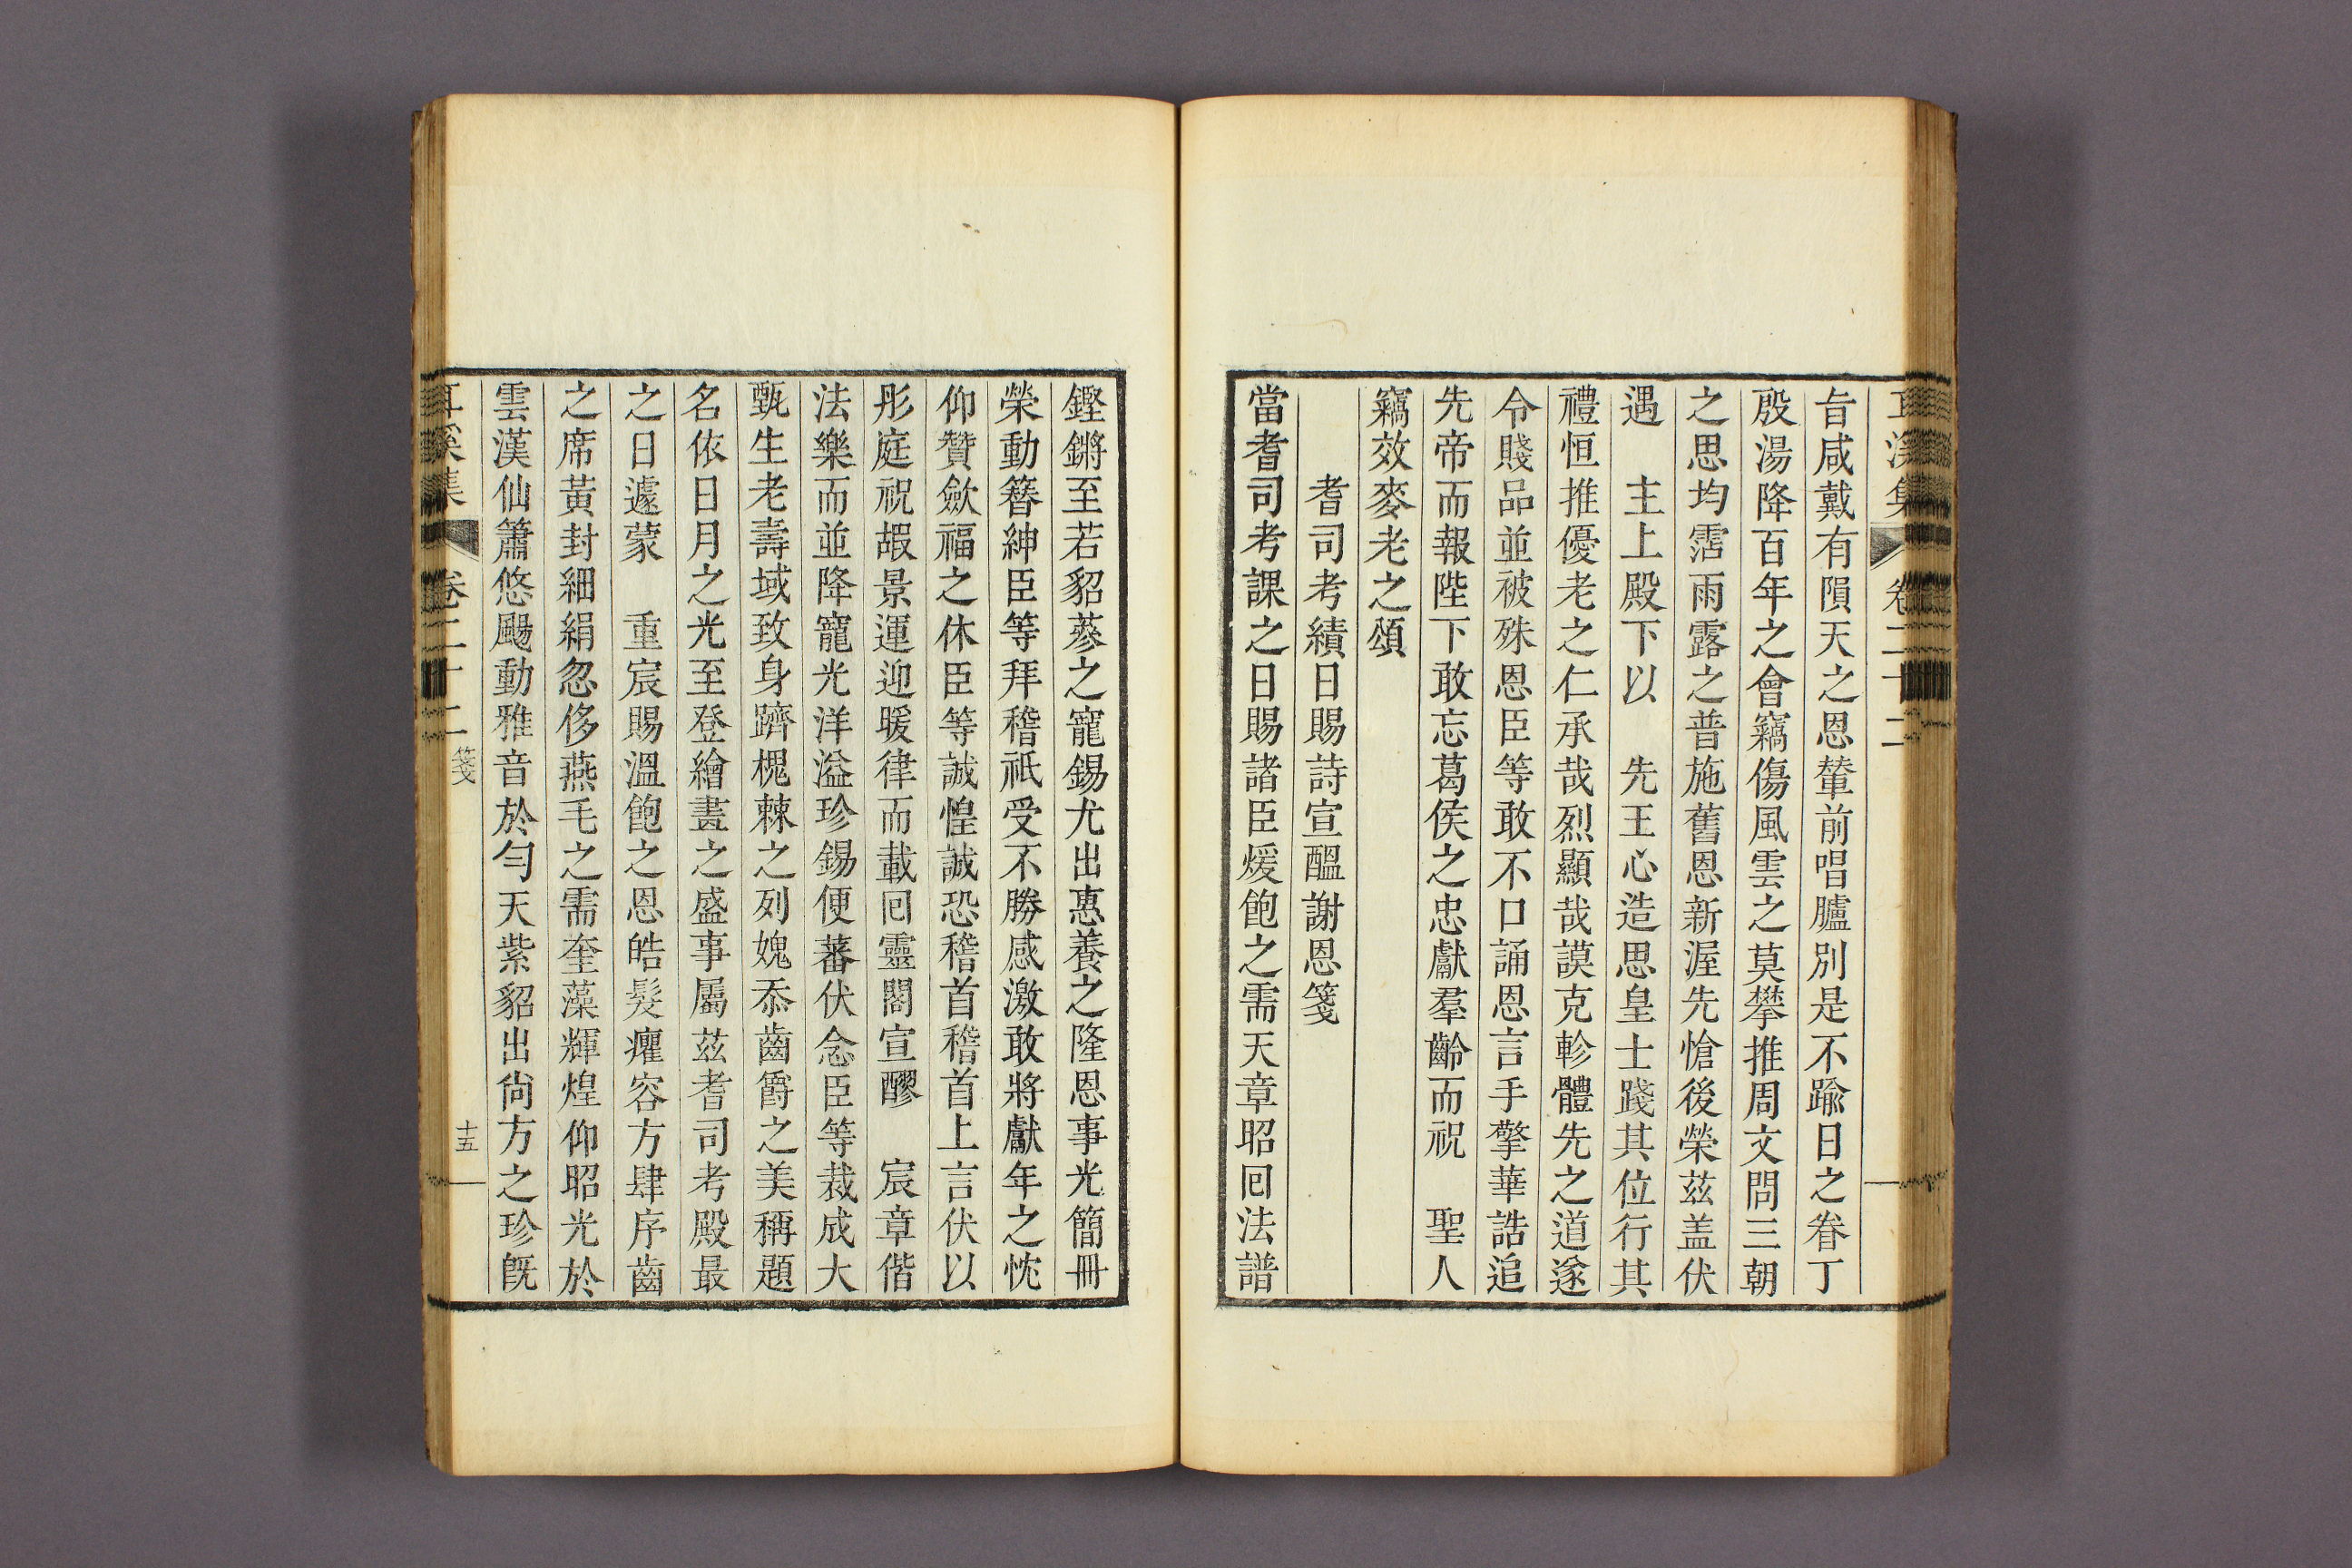 耳溪集 卷二十二
旨咸戴有隕天之恩輦前唱臚別是不踰日之眷丁
殷湯降百年之會竊傷風雲之莫攀推周文問三朝
之思均霑雨露之普施舊恩新渥先愴後榮茲盖伏
遇 主上殿下以 先王心造思皇士踐其位行其
禮恒推優老之仁承哉烈顯哉謨克軫體先之道遂
令賤品並被殊恩臣等敢不口誦恩言手擎華誥追
先帝而報陛下敢忘葛侯之忠獻羣齡而祝 聖人
竊效麥老之頌
耆司考績日賜詩宣醞謝恩箋
當耆司考課之日賜諸臣煖飽之需天章昭回法譜
鏗鏘至若貂蔘之寵錫尤出惠養之隆恩事光簡冊
榮動簪紳臣等拜稽祇受不勝感激敢將獻年之忱
仰贊歛福之休臣等誠惶誠恐稽首稽首上言伏以
彤庭祝嘏景運迎暖律而載回靈閣宣醪 宸章偕
法樂而並降寵光洋溢珍錫便蕃伏念臣等裁成大
甄生老壽域致身躋槐棘之列媿忝齒爵之美稱題
名依日月之光至登繪畫之盛事屬茲耆司考殿最
之日遽蒙 重宸賜溫飽之恩皓髮癯容方肆序齒
之席黃封細絹忽侈燕毛之需奎藻輝煌仰昭光於
雲漢仙簫悠颺動雅音於勻天紫貂出尙方之珍旣
耳溪集 卷二十二 箋 十五